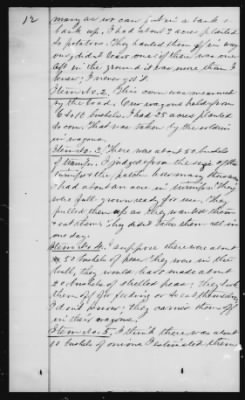 12
many as we can put in a bank &
bank up, I had about 2 acres planted
in potatoes. They hauled them off in wag-
ons, didn't leave one if there was one
left in the ground it was more than I
knew; I never got it.
Item No. 2. This corn was measured
by the loads. Our wagons hold from
to 10 bushels. I had 25 acres planted
to corn. That was taken by the soldiers
in wagons.
Item No. 3. There was about 50 bushels
of turnips. I judged from the size of the
turnips & the patch how many there was
I had about an acre in turnips. They
were full grown ready for use. They
pulled them up as they wanted them
& eat them; they didn't take them all in
one day.
Item No. 4. I suppose there were about
50 bushels of peas they were in the
hull, they would have made about
20 bushels of shelled peas; they took
them off for feeding or to eat themselves
I don't know; they carried them off
in their wagons.
Item No. 5. I think there was about
10 bushels of onions I estimated them